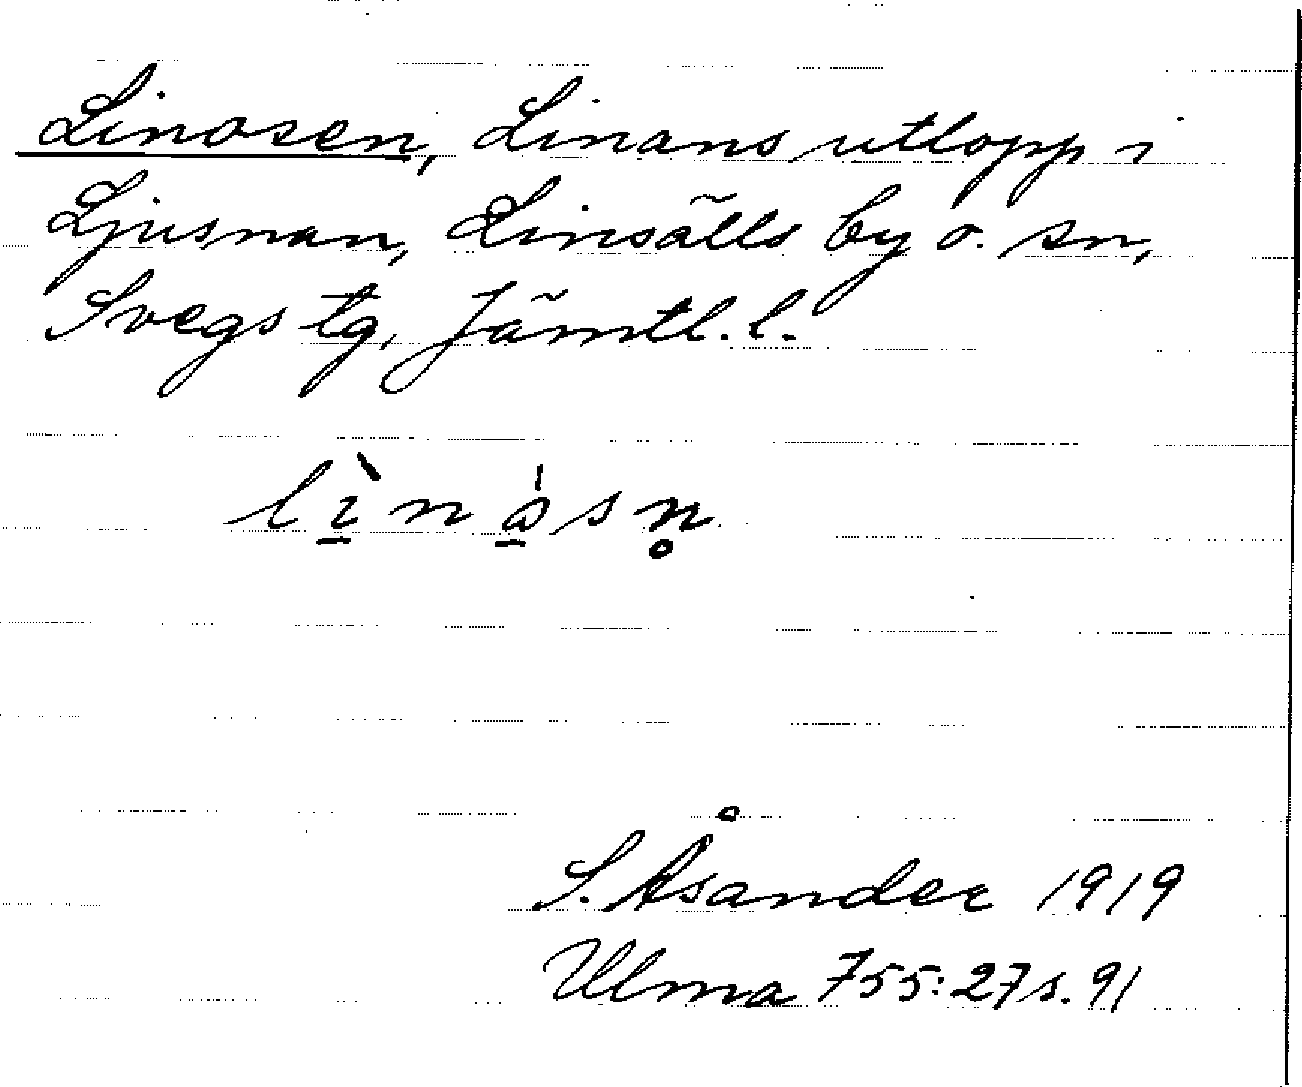 Linosen, Linans utlopp i
Ljusnan, Linsälls by o. sn,
Svegs tg, Jämtl. l.
lìnåsn̥
S. Åsander 1919
Ulma 755:27 s. 91